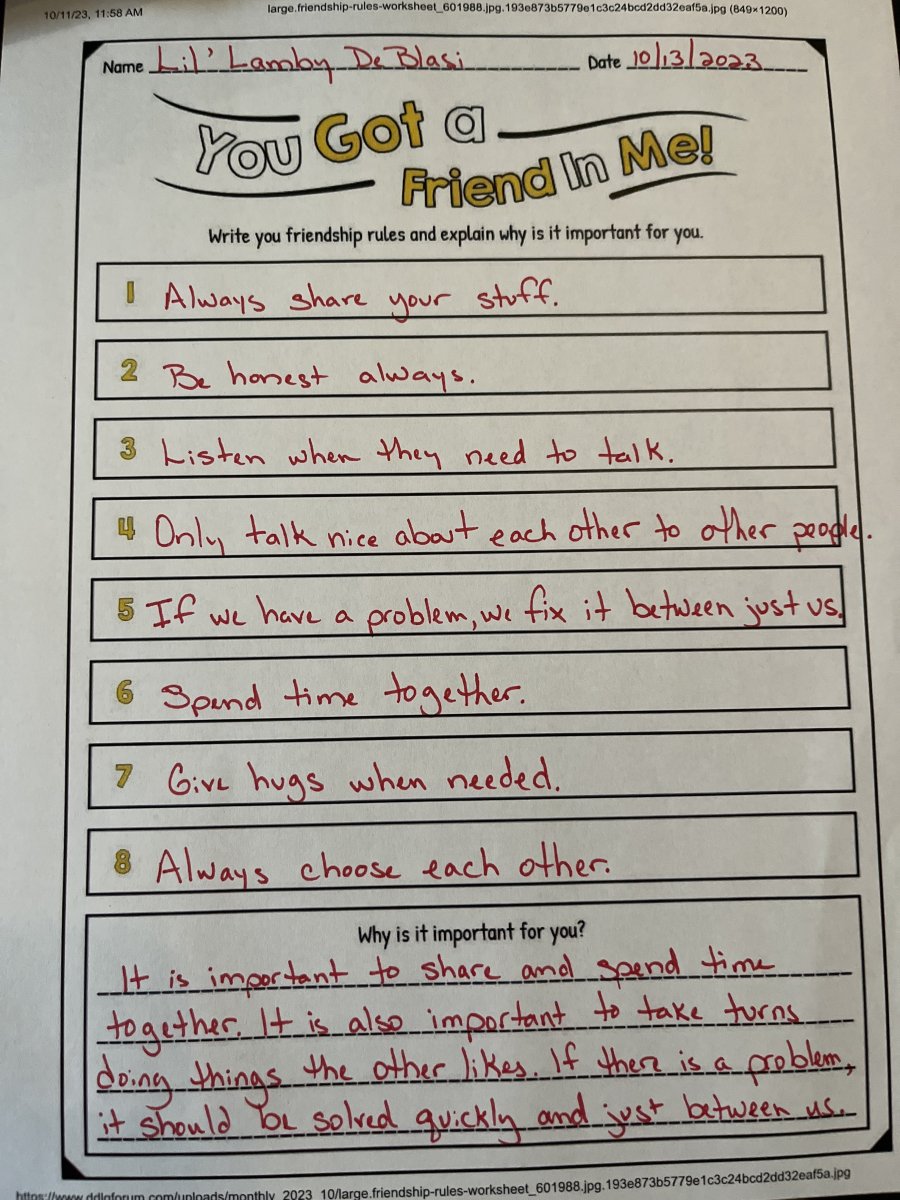 10/11/23, 11:58 AM
large.friendship-rules-worksheet_601988.jpg.193e873b5779e1c3c24bcd2dd32eaf5a.jpg (849×1200)
Name Lil' Lamby DeBlasi Date 10/13/2023
You Got a
Friend In Me!
Write you friendship rules and explain why is it important for you.
1 Always share your stuff.
2 Be honest always.
3 Listen when they need to talk.
4 Only talk nice about each other to other people.
5 If we have a problem, we fix it between just us.
6 Spend time together.
7 Give hugs when needed.
8 Always choose each other.
Why is it important for you?
It is important to share and spend time
together. It is also important to take turns
doing things the other likes. If there is a problem,
it should be solved quickly and just between us.
https://www.ddlgforum.com/uploads/monthly_2023_10/large.friendship-rules-worksheet_601988.jpg.193e873b5779e1c3c24bcd2dd32eaf5a.jpg